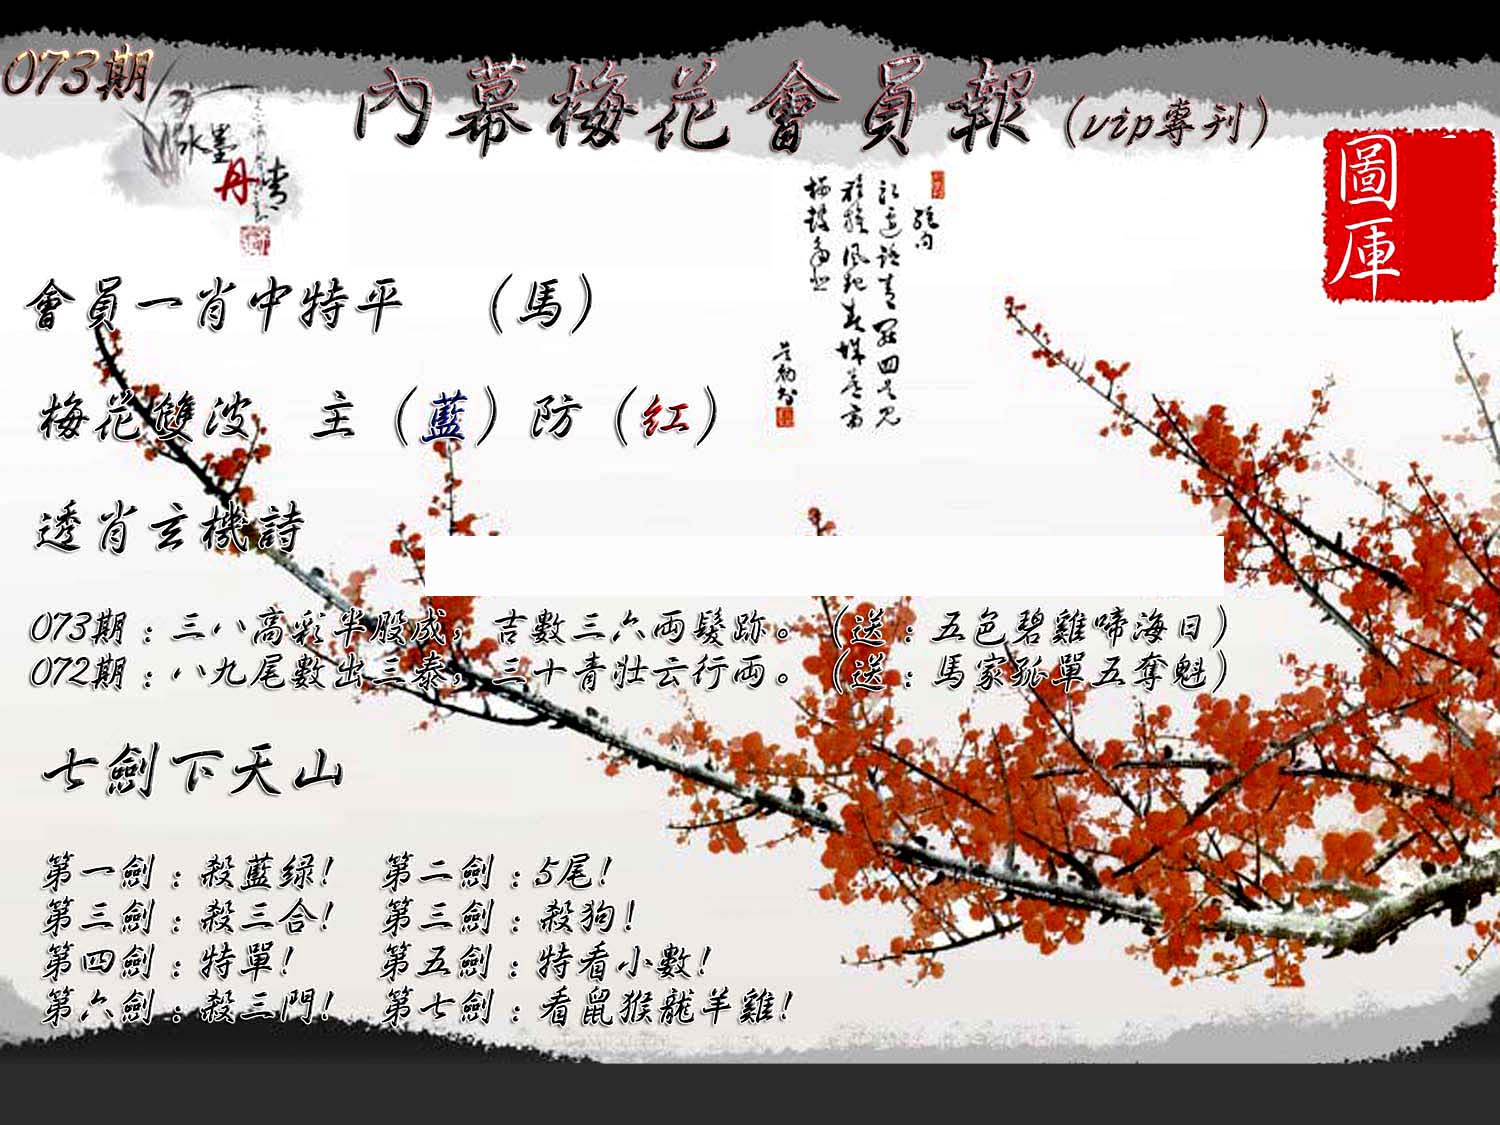 073期
內幕梅花會員報(vip專刊)
水墨
丹青
圖庫
會員一肖中特平 (馬)
梅花雙波 主(藍)防(红)
透肖玄機詩
073期:三八高彩半股成,吉數三六両髮跡。(送:五色碧雞啼海日)
072期:八九尾數出三泰,三十青壮云行両。(送:馬家孤單五奪魁)
七劍下天山
第一劍:殺藍绿! 第二劍:5尾!
第三劍:殺三合! 第三劍:殺狗!
第四劍:特單! 第五劍:特看小數!
第六劍:殺三門! 第七劍:看鼠猴龍羊雞!